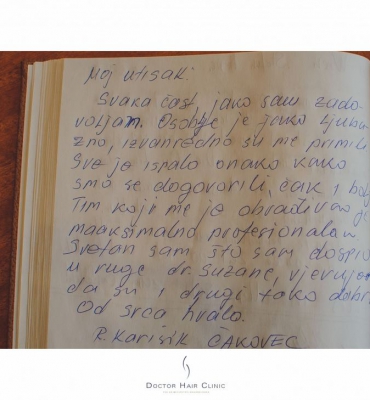 Moj utisak:
Svaka čast, jako sam zado-
voljan. Osoblje je jako ljuba-
zno, izvanredno su me primili
Sve je ispalo onako kako
smo se dogovorili, čak i
Tim koji me je obrađivao je
maaksimalno profesionalan
Sretan sam što sam dospio
u ruge dr. Suzane, vjerujem
da su i drugi tako dobri
Od srca hvalo.
R. Karišik ČAKOVEC
DOCTOR HAIR CLINIC